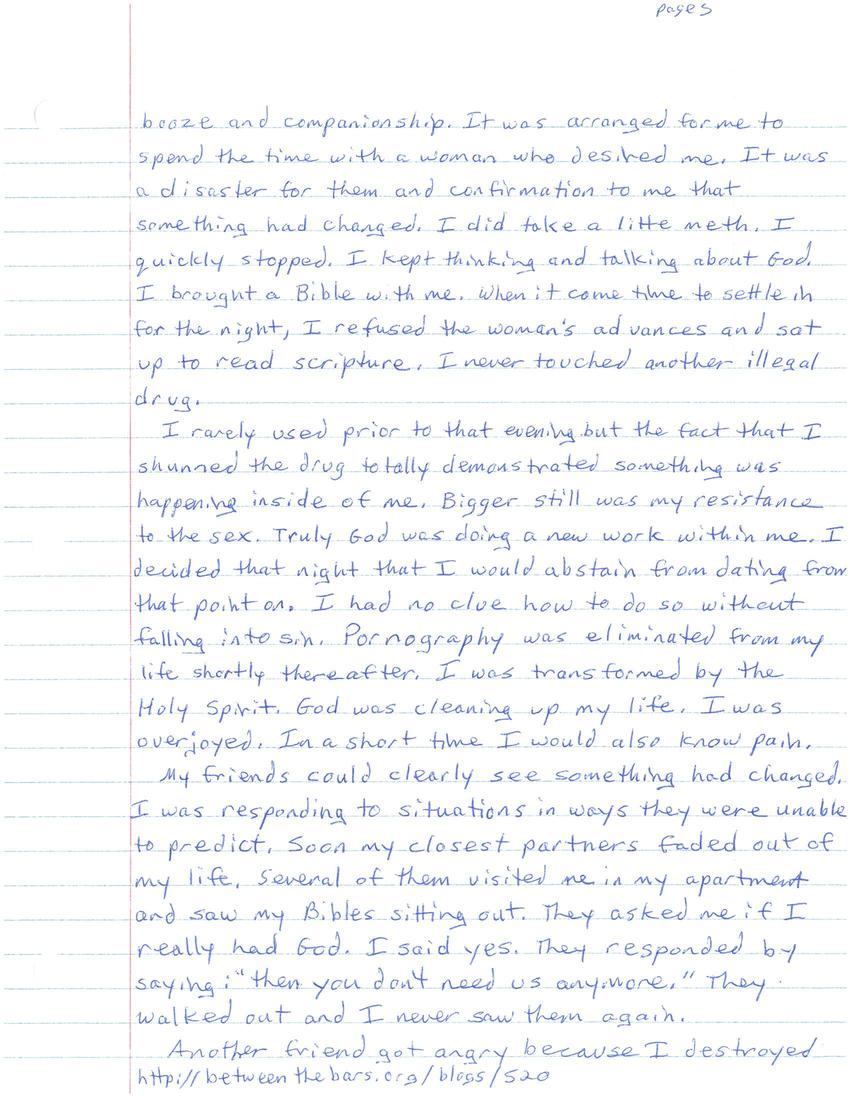 page 5
booze and companionship. It was arranged for me to
spend the time with a woman who desired me. It was
a disaster for them and confirmation to me that
something had changed. I did take a litte meth. I
quickly stopped. I kept thinking and talking about God.
I brought a Bible with me. When it come time to settle in
for the night, I refused the woman's advances and sat
up to read scripture. I never touched another illegal
drug.
I rarely used prior to that evening but the fact that I
shunned the drug totally demonstrated something was
happening inside of me. Bigger still was my resistance
to the sex. Truly God was doing a new work within me. I
decided that night that I would abstain from dating from
that point on. I had no clue how to do so without
falling into sin. Pornography was eliminated from my
life shortly thereafter. I was transformed by the
Holy Spirit. God was cleaning up my life. I was
overjoyed. In a short time I would also know pain.
My friends could clearly see something had changed.
I was responding to situations in ways they were unable
to predict. Soon my closest partners faded out of
my life. Several of them visited me in my apartment
and saw my Bibles sitting out. They asked me if I
really had God. I said yes. They responded by
saying: "then you don't need us anymore." They
walked out and I never saw them again.
Another friend got angry because I destroyed
http://betweenthebars.org/blogs/520